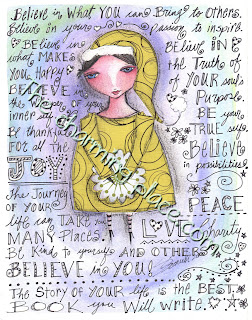 Believe in What YOU can Bring to Others.
Believe in your Passion to inspire.
Believe in what MAKES You Happy
BELIEVE in the
inner self
Be thankful FOR all the
JOY
The Journey of YOUR
life can TAKE
MANY Places.
Believe in the Truths of YOUR Soul's Purpose
BE your TRUE self
Believe in possibilities
PEACE
LOVE
charity
BE Kind to yourself AND OTHERS
BELIEVE in YOU!
The Story of YOUR life is the BEST
BOOK you Will write.